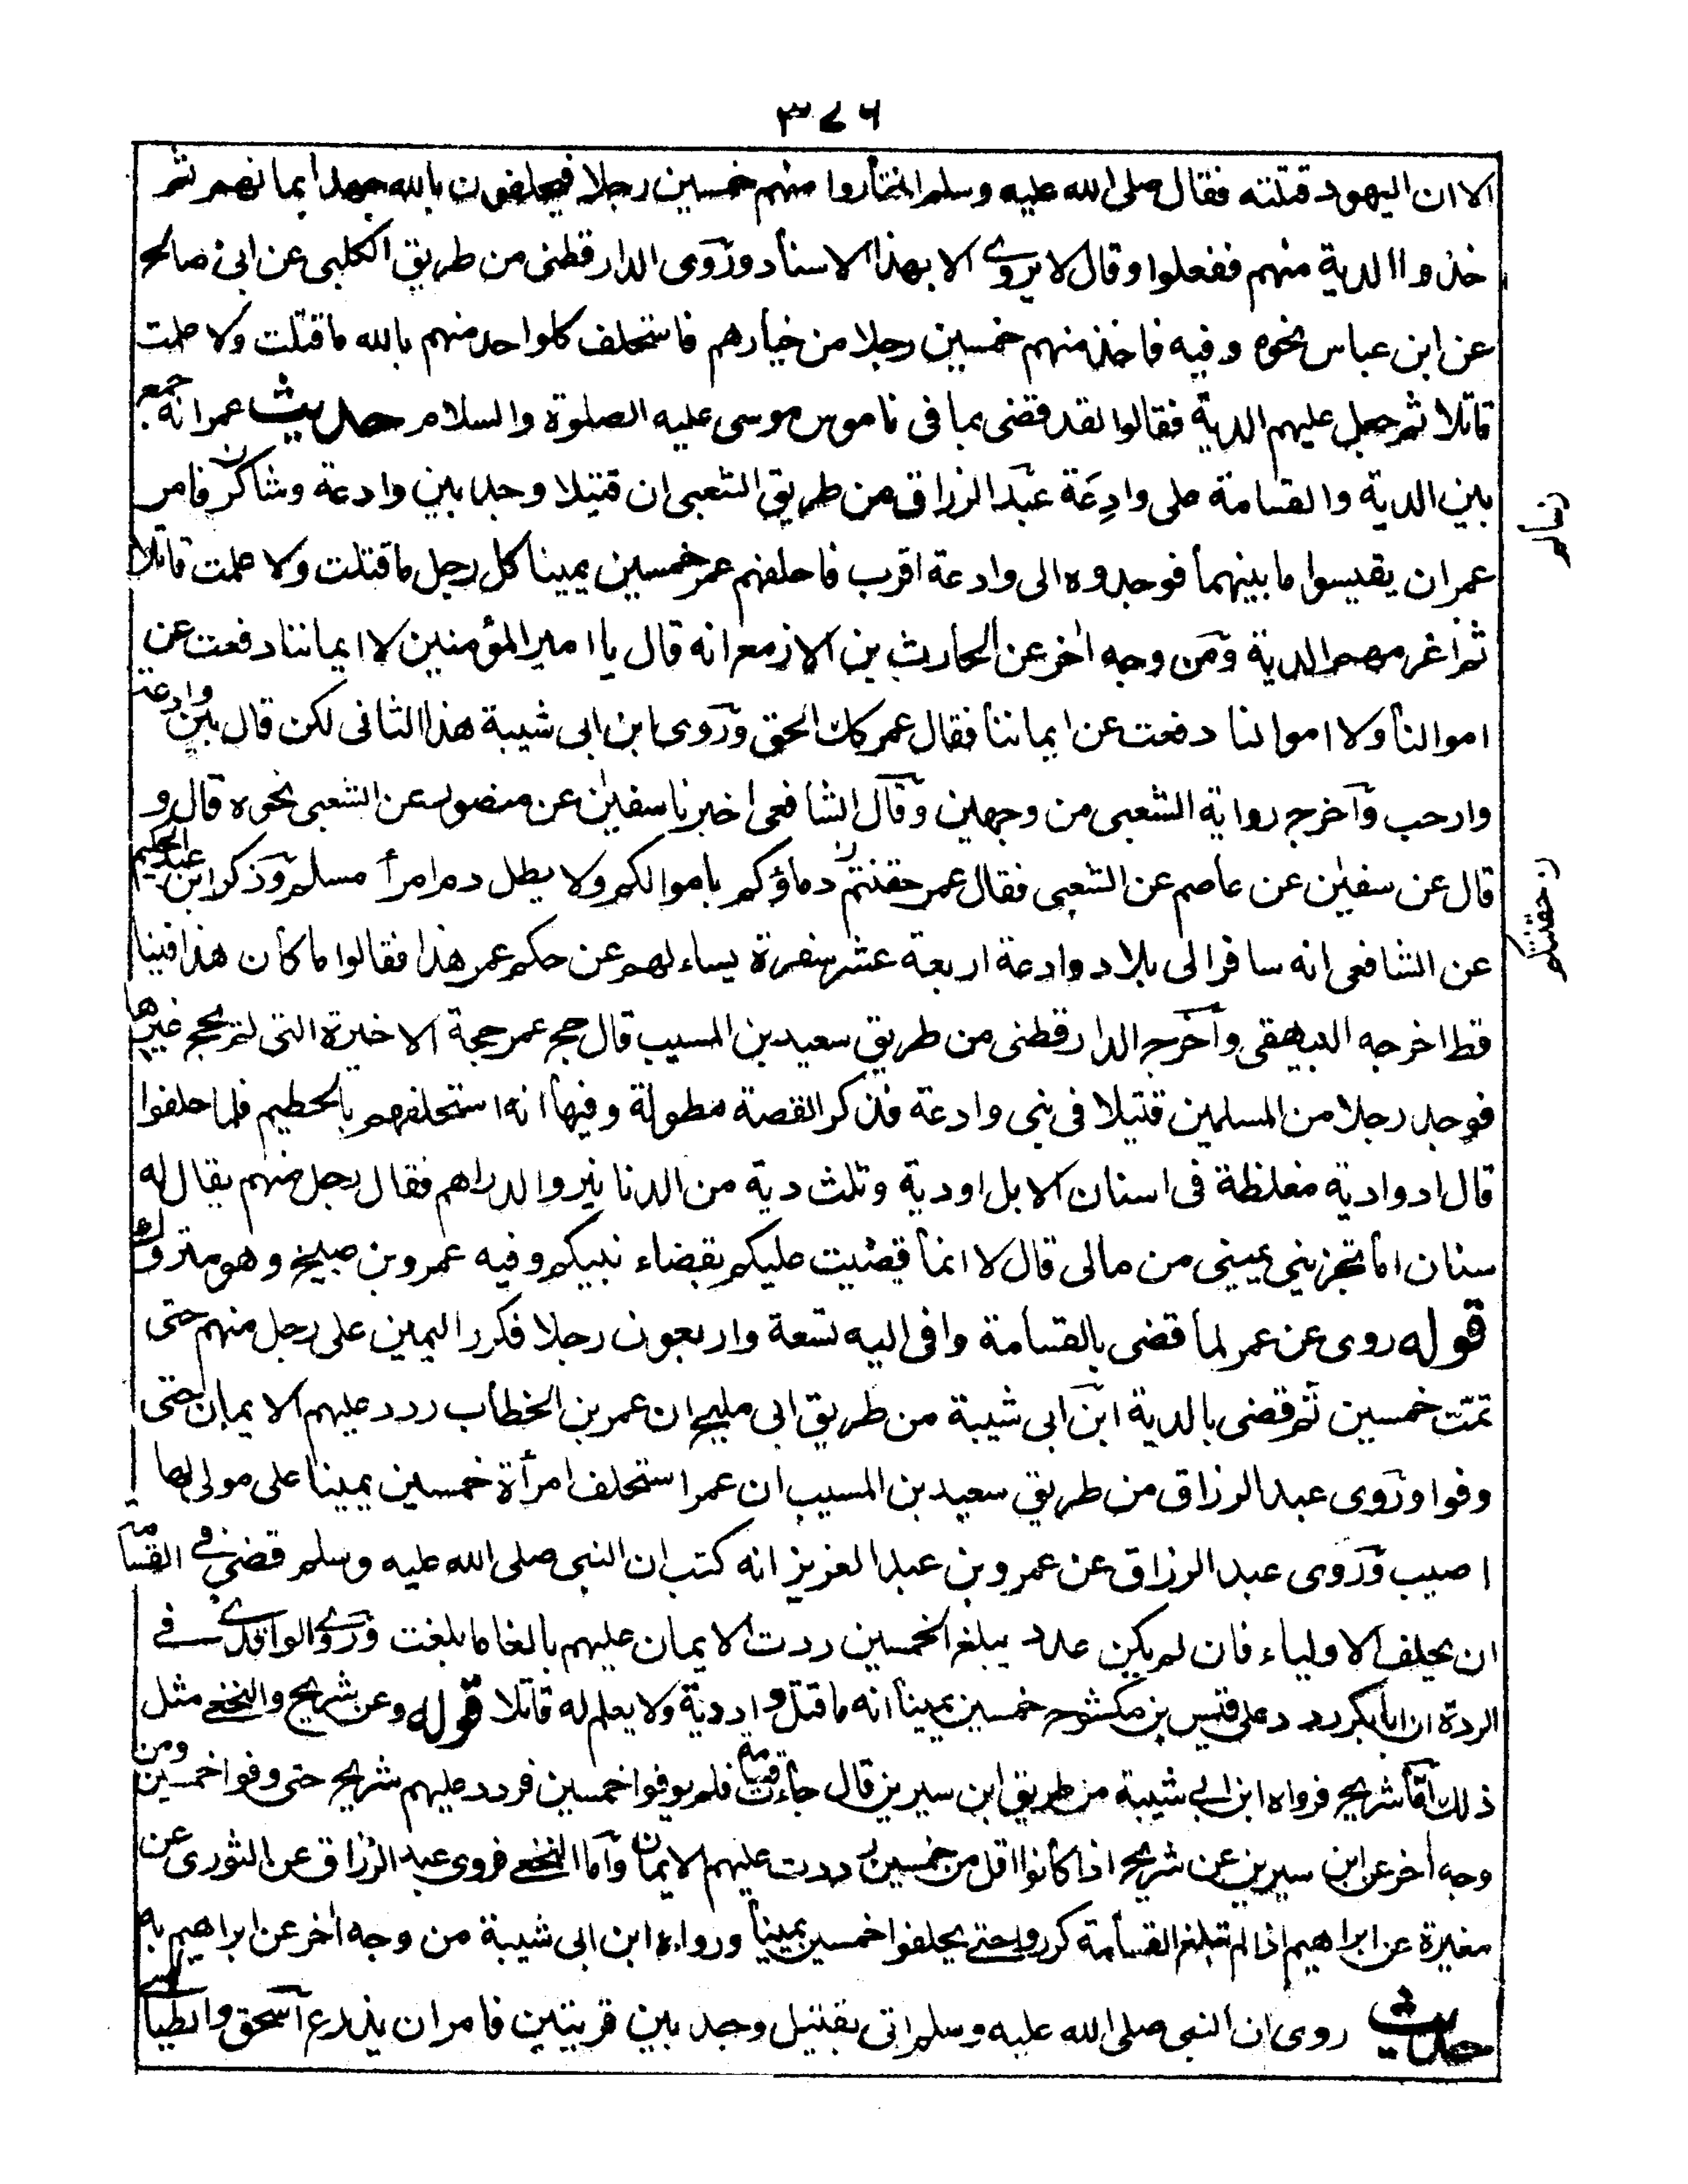 ٣٧٦
الا ان اليهود قتلته فقال صلى الله عليه وسلم اختاروا منهم خمسين رجلا فيحلفون بالله جهد ايمانهم ثم
خذوا الدية منهم ففعلوا وقال لا يروى الا بهذا الاسناد وروى الدارقطنى من طريق الكلبى عن ابى صالح
عن ابن عباس نحوه وفيه فاخذ منهم خمسين رجلا من خيارهم فاستحلف كلواحد منهم بالله ما قتلت ولا علمت
قاتلا ثم جعل عليهم الدية فقالوا لقد قضى بما فى ناموس موسى عليه الصلوة والسلام حديث عمر انه جمع
بين الدية والقسامة على وادعة عبد الرزاق من طريق الشعبى ان قتيلا وجد بين وادعة وشاكر فامر
عمر ان يقيسوا ما بينهما فوجدوه الى وادعة اقرب فاحلفهم عمر خمسين يمينا كل رجل ما قتلت ولا علمت قاتلا
ثم اغرمهم الدية ومن وجه اخر عن الحارث بن الازمع انه قال يا امير المؤمنين لا ايماننا دفعت عن
اموالنا ولا اموالنا دفعت عن ايماننا فقال عمر كذلك الحق وروى ابن ابى شيبة هذا الثانى لكن قال بين وادعة
وارحب واخرج رواية الشعبى من وجهين وقال الشافعى اخبرنا سفين عن منصور عن الشعبى نحوه قال و
قال عن سفين عن عاصم عن الشعبى فقال عمر حقنتم دماؤكم باموالكم ولا يطل دم امرأ مسلم وذكر ابن عبد الحكيم
عن الشافعى انه سافر الى بلاد وادعة اربعة عشر سفرة يساءلهم عن حكم عمر هذا فقالوا ما كان هذا فينا
قط اخرجه البيهقى واخرج الدارقطنى من طريق سعيد بن المسيب قال حج عمر حجة الاخيرة التى لم يحج غيرها
فوجد رجلا من المسلمين قتيلا فى بنى وادعة فذكر القصة مطولة وفيها انه استحلفهم بالحطيم فلما حلفوا
قال ادوا دية مغلظة فى اسنان الابل او دية وثلث دية من الدنانير والدراهم فقال رجل منهم يقال له
سنان اما تجزينى يمينى من مالى قال لا انما قضيت عليكم بقضاء نبيكم وفيه عمرو بن صبيح وهو متروك
قوله روى عن عمر لما قضى بالقسامة وافى اليه تسعة واربعون رجلا فكرر اليمين على رجل منهم حتى
تمت خمسين ثم قضى بالدية ابن ابى شيبة من طريق ابى مليح ان عمر بن الخطاب ردد عليهم الايمان حتى
وفوا وروى عبد الرزاق من طريق سعيد بن المسيب ان عمر استحلف امرأة خمسين يمينا على مولى لها
اصيب وروى عبد الرزاق عن عمرو بن عبد العزيز انه كتب ان النبى صلى الله عليه وسلم قضى فى القسامة
ان يحلف الاولياء فان لم يكن عدد يبلغ الخمسين ردت الايمان عليهم بالغا ما بلغت وروى الواقدى فى
الردة ان ابا بكر ردد على قيس بن مكشوح خمسين يمينا انه ما قتل ولا يعلم له قاتلا قوله وعن شريح والنخعى مثل
ذلك اما شريح فرواه ابن ابى شيبة من طريق ابن سيرين قال جاءت قسامة فلم يوفوا خمسين فردد عليهم شريح حتى وفوا خمسين ومن
وجه اخر عن ابن سيرين عن شريح اذا كانوا اقل من خمسين رددت عليهم الايمان واما النخعى فروى عبد الرزاق عن الثورى عن
مغيرة عن ابراهيم اذا لم تبلغ القسامة كرروا حتى يحلفوا خمسين يمينا ورواه ابن ابى شيبة من وجه اخر عن ابراهيم به
حديث روى ان النبى صلى الله عليه وسلم اتى بقتيل وجد بين قريتين فامر ان يذرع اسحق والطيالسى